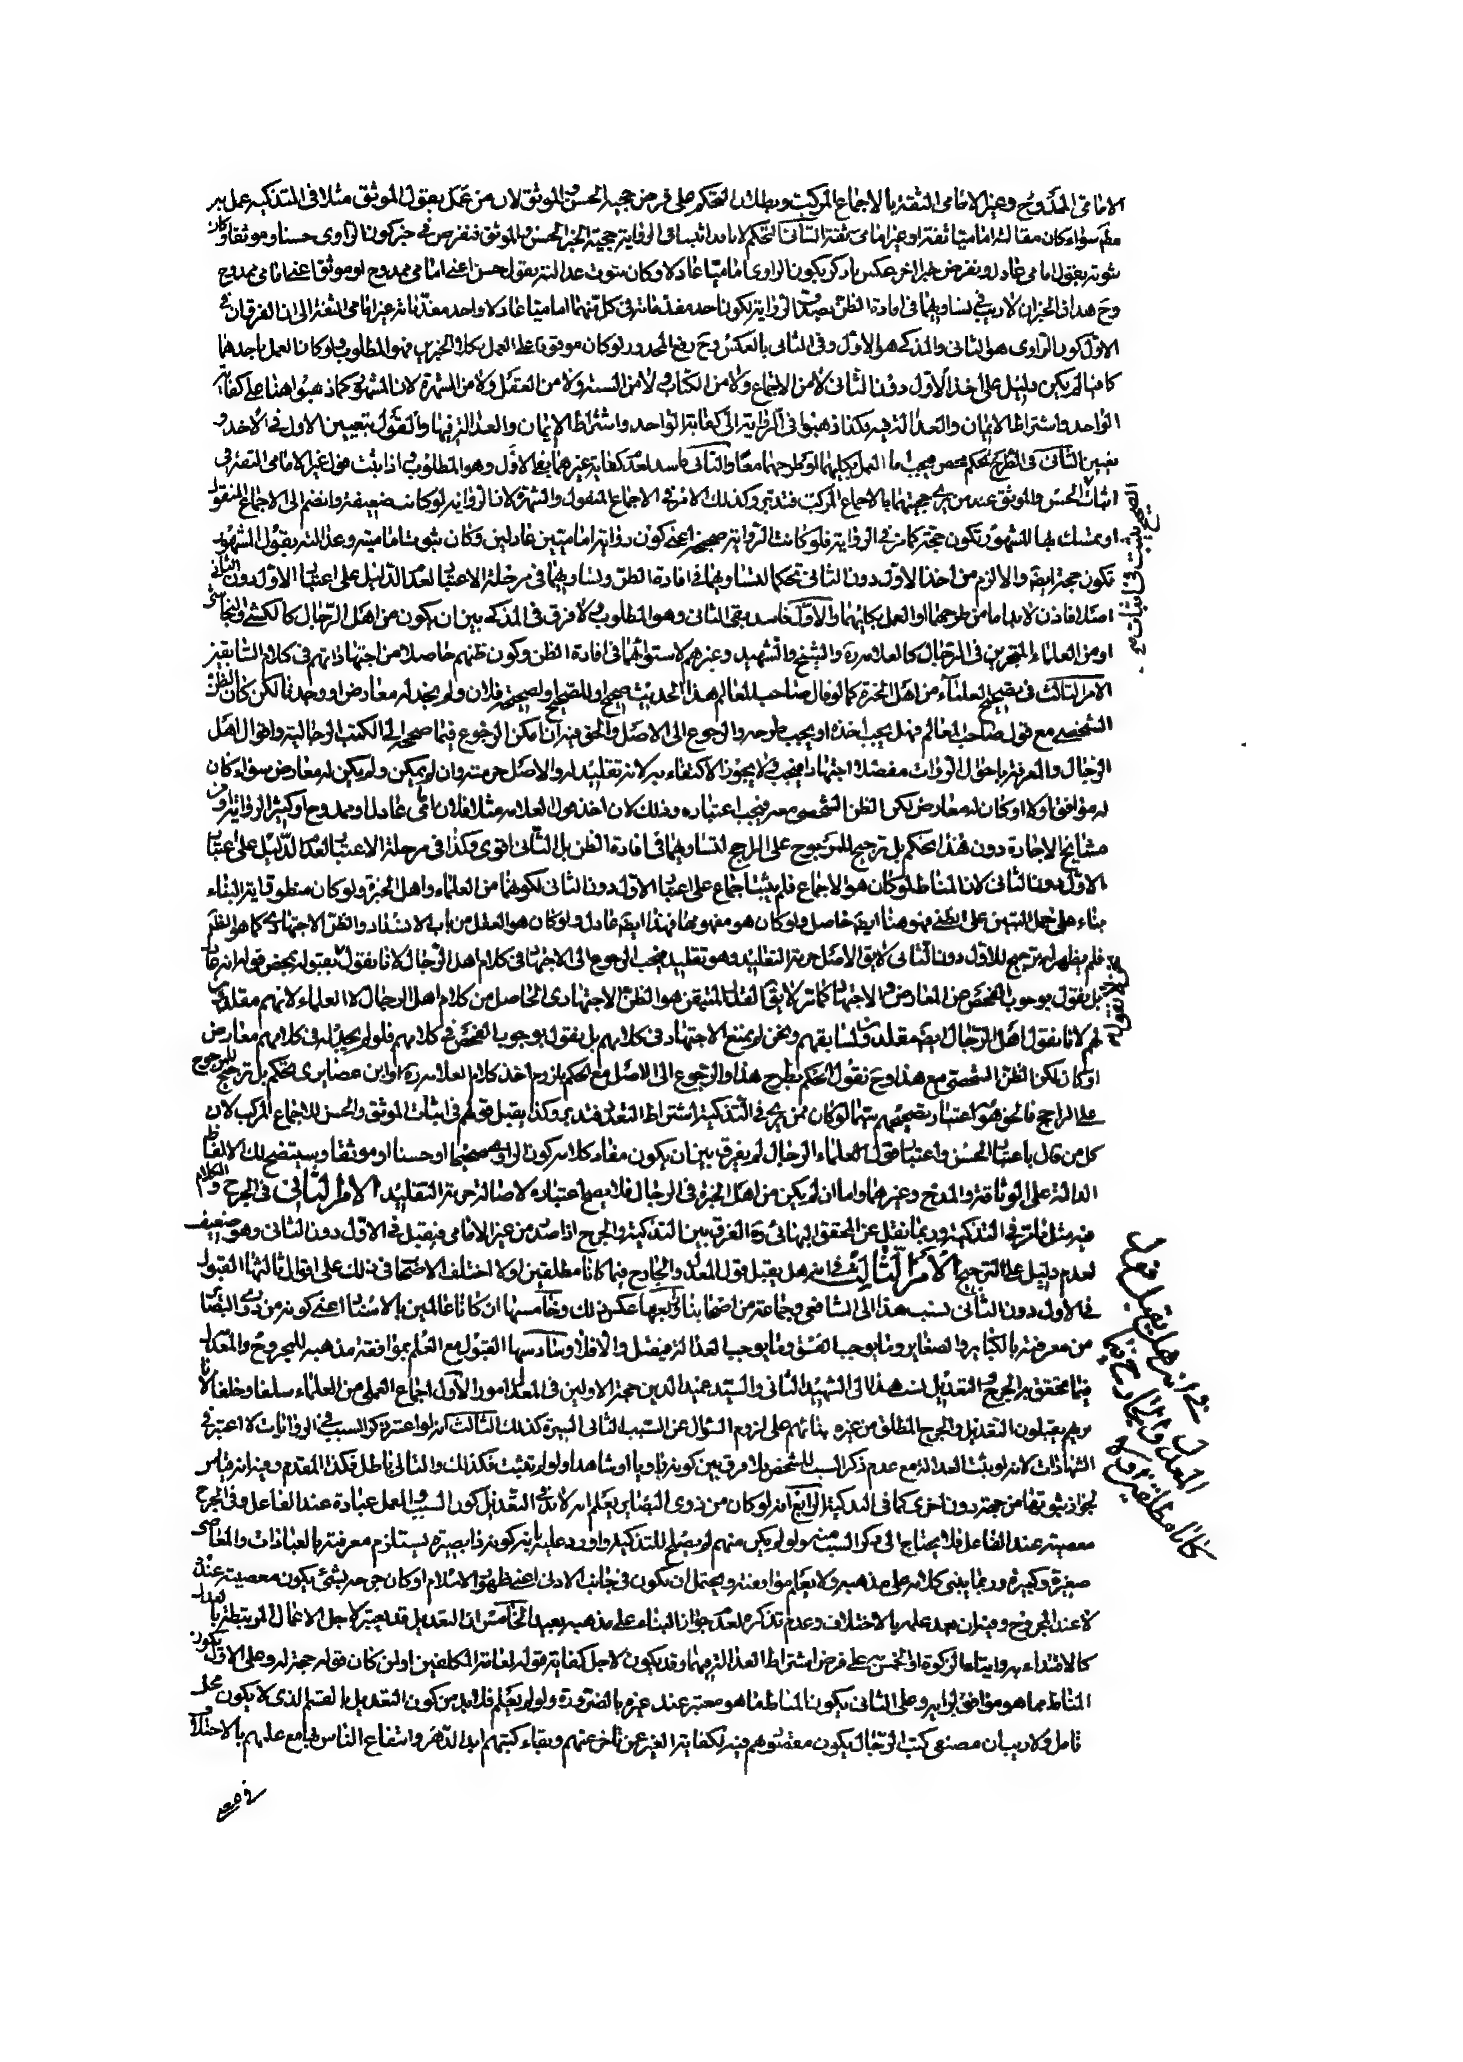 الامامى الممدوح وغير الامامى الثقة بالاجماع المركب وبطلان التحكم على فرض حجية الحسن والموثق لان من عمل بقول الموثق مثلا فى التذكية عمل به
مطم سواء كان مقالته اماميا ثقة او غير امامى ثقة الثانى التحكم لانا بعد اثباتنا فى الرواية حجية الخبر الحسن والموثق فنفرض فى خبر كون الراوى حسنا وموثقا وكان
ثبوته بقول امامى عادل ونفرض خبرا اخر عكس ما ذكر بكون الراوى اماميا عادلا وكان ثبوت عدالته بقول حسن اعنى امامى ممدوح او موثق اعنى امامى ممدوح
وح هذان الخبران لا ريب فى تساويهما فى افادة الظن بصدق الرواية لكون احد مقدماته فى كل منهما اماميا عادلا واحد مقدماته غير امامى الثقة الى ان الفرق ان فى
الاول كون الراوى هو الثانى والمذكى هو الاول وفى الثانى بالعكس وح رفع المحذور لو كان موقوفا على العمل بكلا الخبرين فهو المطلوب ولو كان العمل باحدهما
كافيا لم يكن دليل على اخذ الاول دون الثانى لا من الاجماع ولا من الكتاب ولا من السنة ولا من العقل ولا من الشهرة لان المشهور كما ذهبوا هنا على كفاية
الواحد واشتراط الايمان والعدالة فيه فكذا ذهبوا فى الرواية الى كفاية الواحد واشتراط الايمان والعدالة فيها والقول بتعيين الاول فى الاخذ و
تعيين الثانى فى الطرح تحكم محض فيجب اما العمل بكليهما او طرحهما معا والثانى فاسد لعدم كفاية غيرهما بقى الاول وهو المطلوب اذا يثبت قول غير الامامى الثقة فى
اثبات الحسن والموثق عند من يرى حجيتهما بالاجماع المركب فتدبر وكذلك الامر فى الاجماع المنقول والشهرة لان الرواية لو كانت ضعيفة وانضم الى الاجماع المنقول
او تمسك بها المشهور تكون حجة كما مر فى الرواية فلو كانت الرواية صحيحة اعنى كون رواية اماميين عادلين وكان ثبوت اماميته وعدالته بقول المشهور
تكون حجة ايضا والا لزم من اخذ الاول دون الثانى تحكما لتساويهما فى افادة الظن وتساويهما فى مرحلة الاعتبار لعدم الدليل على اعتبار الاول دون الثانى
اصلا فاذن لا بد اما من طرحهما او العمل بكليهما والاول فاسد بقى الثانى وهو المطلوب ولا فرق فى المذكى بين ان يكون من اهل الرجال كالكشى والنجاشى
او من العلماء المتبحرين فى الرجال كالعلامة ره والشيخ والشهيد وغيرهم لاستوائهما فى افادة الظن وكون ظنهم حاصلا من اجتهاداتهم فى كلام السابقين
الامر الثالث فى تصحيح العلماء من اهل الخبرة كما لو قال صاحب المعالم هذا الحديث صحيح او للصحيح او لصحيحة فلان ولم يجد له معارض او وجدنا لكن كان الظن
الشخصى مع قول صاحب المعالم فهل يجب اخذه او يجب طرحه والرجوع الى الاصل والحق فيه ان امكن الرجوع فيما صححه الى الكتب الرجالية واقوال اهل
الرجال والمعرفة باحوال الروات مفصلا اجتهادا فيجب ولا يجوز الاكتفاء به لانه تقليد له والاصل حرمته وان لم يمكن ولم يكن له معارض سواء كان
له موافق اولا او كان له معارض لكن الظن الشخصى معه فيجب اعتباره وذلك لان اخذ قول العلامة مثلا فلان امامى عادل او ممدوح او كثير الرواية او من
مشايخ الاجازة دون هذا تحكم بل ترجيح للمرجوح على الراجح لتساويهما فى افادة الظن بل الثانى اقوى وكذا فى مرحلة الاعتبار لعدم الدليل على اعتبار
الاول دون الثانى لان المناط لو كان هو الاجماع فلم يثبت اجماع على اعتبار الاول دون الثانى لكونهما من العلماء واهل الخبرة ولو كان منطوق اية النباء
بناء على حمل التبين على الظنى فهو هنا ايضا حاصل ولو كان هو مفهومها فهذا ايضا عادل ولو كان هو العقل من باب الانسداد والظن الاجتهادى كما هو الظ
فلم يظهر له ترجيح للاول دون الثانى لا يق الاصل حرمة التقليد وهو تقليد فيجب الرجوع الى الاجتهاد فى كلام اهل الرجال لانا نقول لا بقبوله بمحض قوله انه عادل
بل نقول بوجوب الفحص عن المعارض والاجتهاد كما مر لا يق القدر المتيقن هو الظن الاجتهادى الحاصل من كلام اهل الرجال لا العلماء لانهم مقلدين
لهم لانا نقول اهل الرجال ايضا مقلدون لسابقهم ونحن لم نمنع الاجتهاد فى كلامهم بل نقول بوجوب الفحص فى كلامهم فلو لم يجد له فى كلامهم معارض
او كان لكن الظن الشخصى مع هذا وح نقول الحكم بطرح هذا والرجوع الى الاصل مع الحكم بلزوم اخذ كلام العلامة ره او ابن غضايرى تحكم بل ترجيح للمرجوح
على الراجح فالحق هو اعتبار تصحيحهم سيما لو كان ممن يرى فى التذكية اشتراط التعدد فتدبر وكذا يقبل قولهم فى اثبات الموثق والحسن للاجماع المركب لان
كل من قال باعتبار الحسن واعتبار قول العلماء الرجال لم يفرق بين ان يكون مفاد كلامه كون الراوى صحيحا او حسنا او موثقا وسيتضح لك الالفاظ
الدالة على الوثاقة والمدح وغيرهما واما ان لم يكن من اهل الخبرة فى الرجال فلا يصح اعتباره لاصالة حرمة التقليد الامر الثانى فى الجرح والكلام
فيه مثل ما مر فى التذكية وربما نقل عن المحقق البهائى ره الفرق بين التذكية والجرح اذا صدر من غير الامامى فيقبل فى الاول دون الثانى وهو ضعيف
لعدم دليل على الترجيح الامر الثالث فى انه هل يقبل قول المعدل والجارح فيما كانا مطلقين اولا اختلف الاصحاب فى ذلك على اقوال ثالثها القبول
فى الاول دون الثانى نسب هذا الى الشافعى وجماعة من اصحابنا رابعها عكس ذلك وخامسها ان كانا عالمين بالاسباب اعنى كونه من ذوى البصائر
من معرفته بالكبائر والصغاير وما يوجب الفسق وما يوجب العدالة فيقبل والا فلا وسادسها القبول مع العلم بموافقة مذهبه للمجروح والمعدل
فيما يتحقق به الجرح والتعديل نسب هذا الى الشهيد الثانى والسيد عميد الدين حجة الاولين فى المعدل امور الاول اجماع العملى من العلماء سلفا وخلفا لانا
نريهم يقبلون التعديل والجرح المطلق من غيره بنائهم على لزوم السؤال عن السبب الثانى السيرة كذلك الثالث انه لو اعتبر ذكر السبب فى الروايات لاعتبر فى
الشهادات لانه لو يثبت العدالة مع عدم ذكر السبب للشخص بلا فرق بين كونه راويا او شاهدا ولو لم تثبت فكذلك والتالى باطل فكذا المقدم وفيه انه قياس
لجواز ثبوتها من جهة دون اخرى كما فى التذكية الرابع انه لو كان من ذوى البصاير يعلم انه لابد فى التعديل كون السبب والعمل عبادة عند الفاعل وفى الجرح
معصيته عند الفاعل فلا يحتاج الى ذكر السبب منه ولو لم يكن منهم لم يصلح للتذكية واورد عليه بانه كونه ذا بصيرة يستلزم معرفته بالعبادات والمعاصى
صغيرة وكبيرة وربما يبنى كلامه على مذهبه ولا يعلم موافقته ويحتمل ان يكون فى جانب الادنى اعنى ظهور الاسلام او كان جرحه بشئ يكون معصيته عنده
لا عند المجروح وفيه ان بعد علمه بالاختلاف وعدم تذكره لعدم جواز البناء على مذهبه بعيد الخامس ان التعديل قد يعتبر لاجل الاعمال المرتبطة بالعدل
كالاقتداء به وايتاء الزكوة او الخمس به على فرض اشتراط العدالة فيهما وقد يكون لاجل كفاية قوله لعامة المكلفين او لمن كان قوله حجة له وعلى الاول يكون
المناط مما هو موافق لرايه وعلى الثانى يكون المناط ما هو معتبر عند غيره بالضرورة ولو لم يعلم فلا بد من كون التعديل بالقسم الذى لا يكون محل
تامل ولا ريب ان مصنفى كتب الرجال يكون مقصودهم فيه لكفاية الغير عمن تاخر عنهم وبقاء كتبهم ابد الدهر وانتفاع الناس بها مع علمهم بالاختلاف
فى انه هل يقبل قول
المعدل والجارح فيما
كانا مطلقين اولا